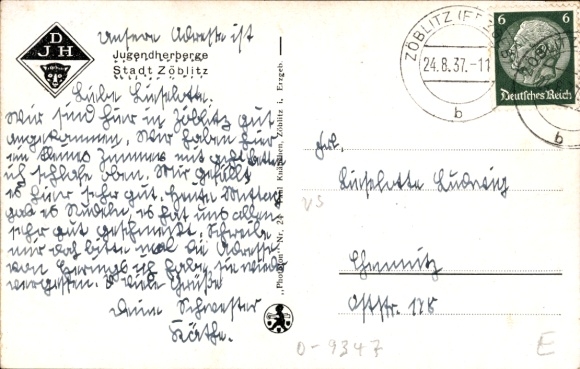 Unsere Adresse ist
D
J H
Jugendherberge
Stadt Zöblitz
Liebe Lieselotte.
Wir sind hier in Zöblitz gut
angekommen. Wir haben hier
ein kleines Zimmer mit acht Betten
ich schlafe oben. Mir gefällt
es hier sehr gut. Heute Mittag
gab es Nudeln, es hat uns allen
sehr gut geschmeckt. Schreibe
mir doch bitte mal die Adresse
von ich habe sie wieder
vergessen. Viele Grüße
deine Schwester
Käthe.
"Photo Nr. 24 Zöblitz i. Erzgeb.
ZÖBLITZ
24.8.37.-11
b
6 6
Deutsches Reich
b
Frl.
Lieselotte Ludwig
Chemnitz
Oststr. 178
VS
0-9347
E